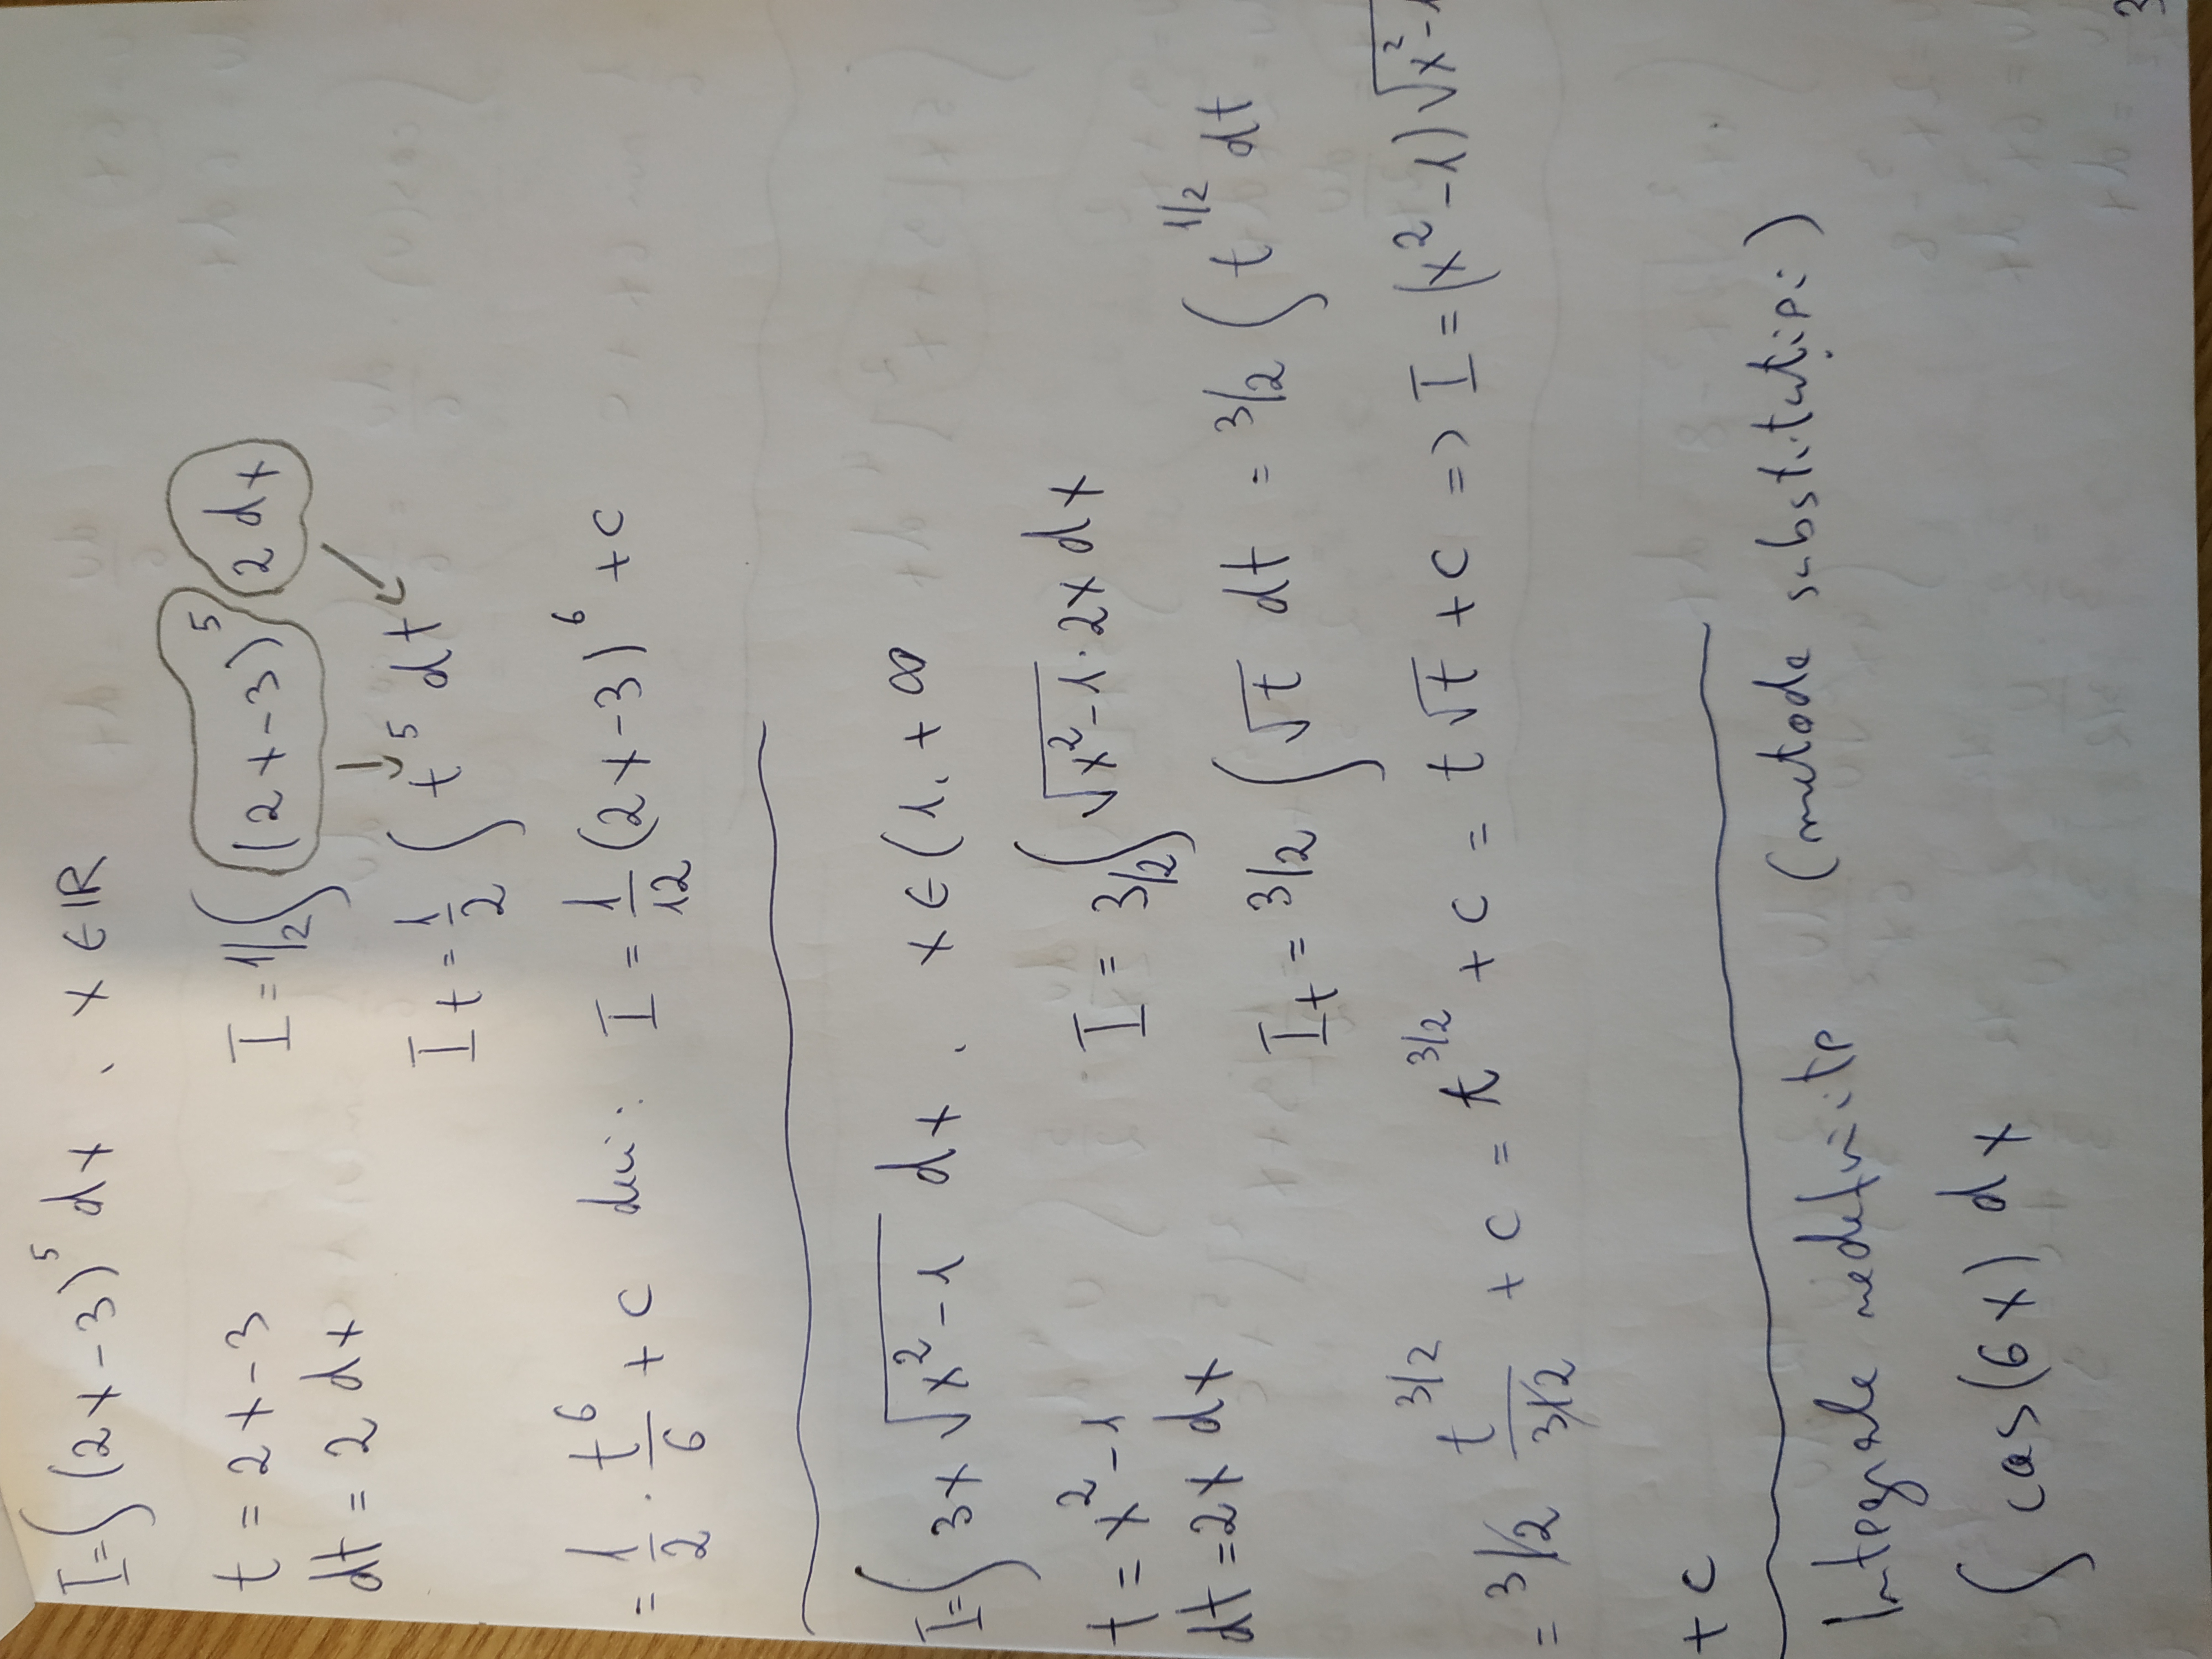 I = ∫ (2x-3)⁵ dx , x ∈ IR
t = 2x-3
I = 1/2 ∫ (2x-3)⁵ 2 dx
dt = 2 dx
I t = 1/2 ∫ t⁵ dt
= 1/2 · t⁶/6 + c deci: I = 1/12 (2x-3)⁶ + c
I = ∫ 3x √(x²-1) dx , x ∈ (1, +∞
t = x²-1
I = 3/2 ∫ √(x²-1) · 2x dx
dt = 2x dx
I t = 3/2 ∫ √t dt = 3/2 ∫ t^1/2 dt
= 3/2 t^3/2 / 3/2 + c = t^3/2 + c = t√t + c => I = (x²-1) √(x²-1
+ c
Integrale nedefinite (metoda substituției)
∫ cos(6x) dx
3